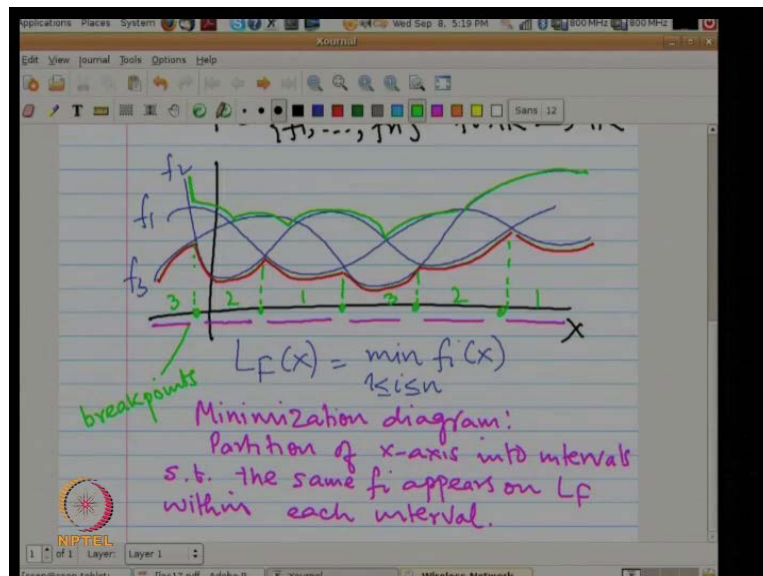 Applications Places System Wed Sep 8, 5:19 PM 800 MHz 800 MHz
Xournal
Edit View Journal Tools Options Help
Sans 12
F = {f1, ..., fn}
f2
f1
f3
3 2 1 3 2 1
X
LF(x) = min fi(x)
1≤i≤n
breakpoints
Minimization diagram:
Partition of x-axis into intervals
s.t. the same fi appears on LF
within each interval.
NPTEL
1 of 1 Layer: Layer 1
Xournal Wireless Network